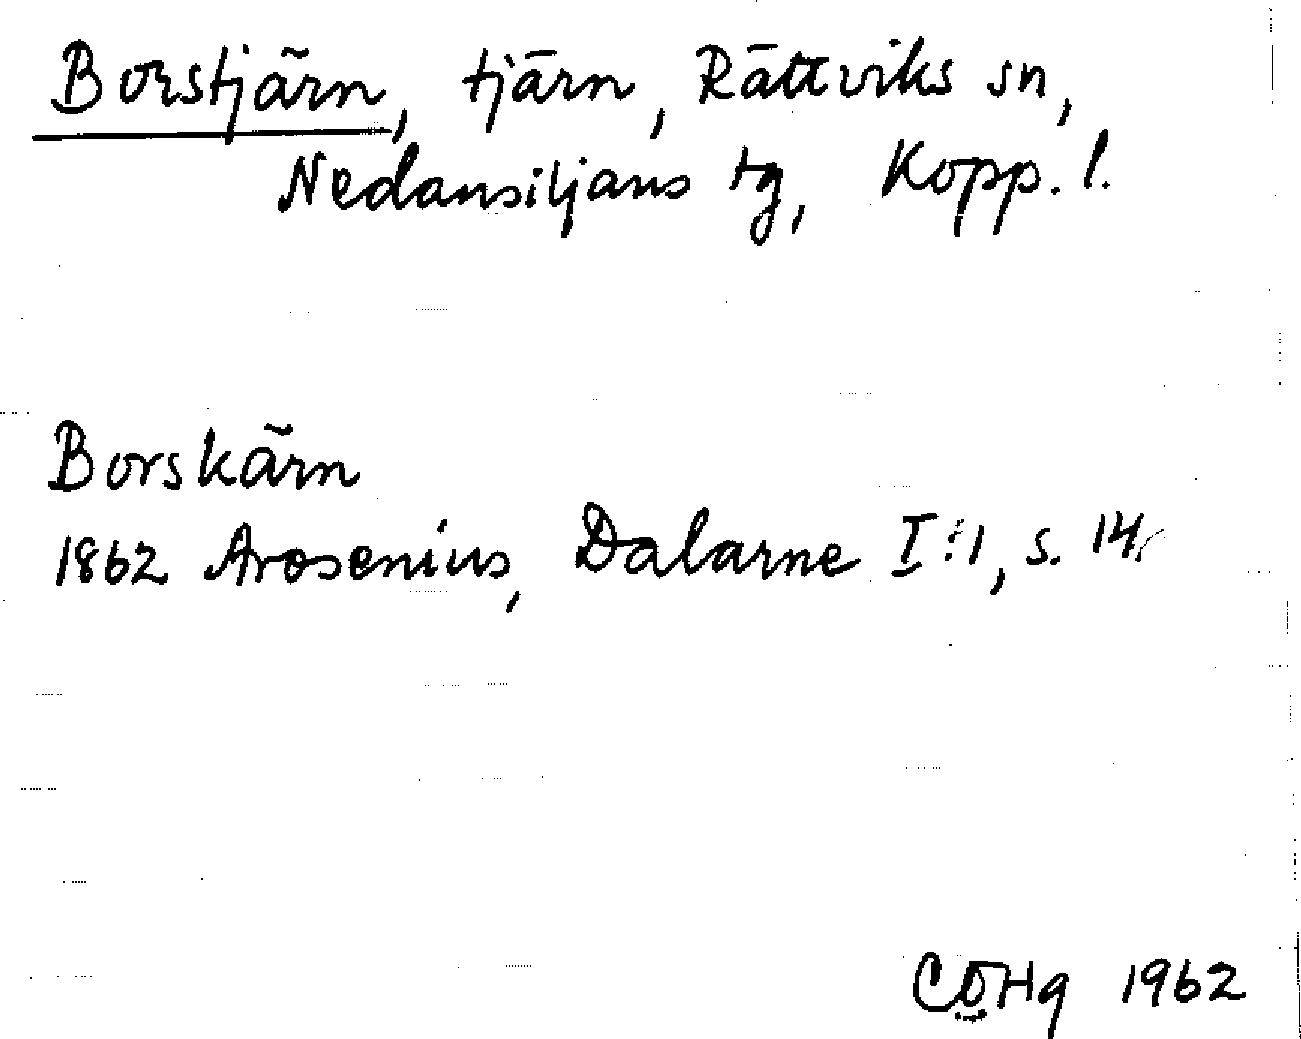 Borstjärn, tjärn, Rättviks sn,
Nedansiljans tg, Kopp. l.
Borskärn
1862 Arosenius, Dalarne I:1, s. 14.
CÖHg 1962